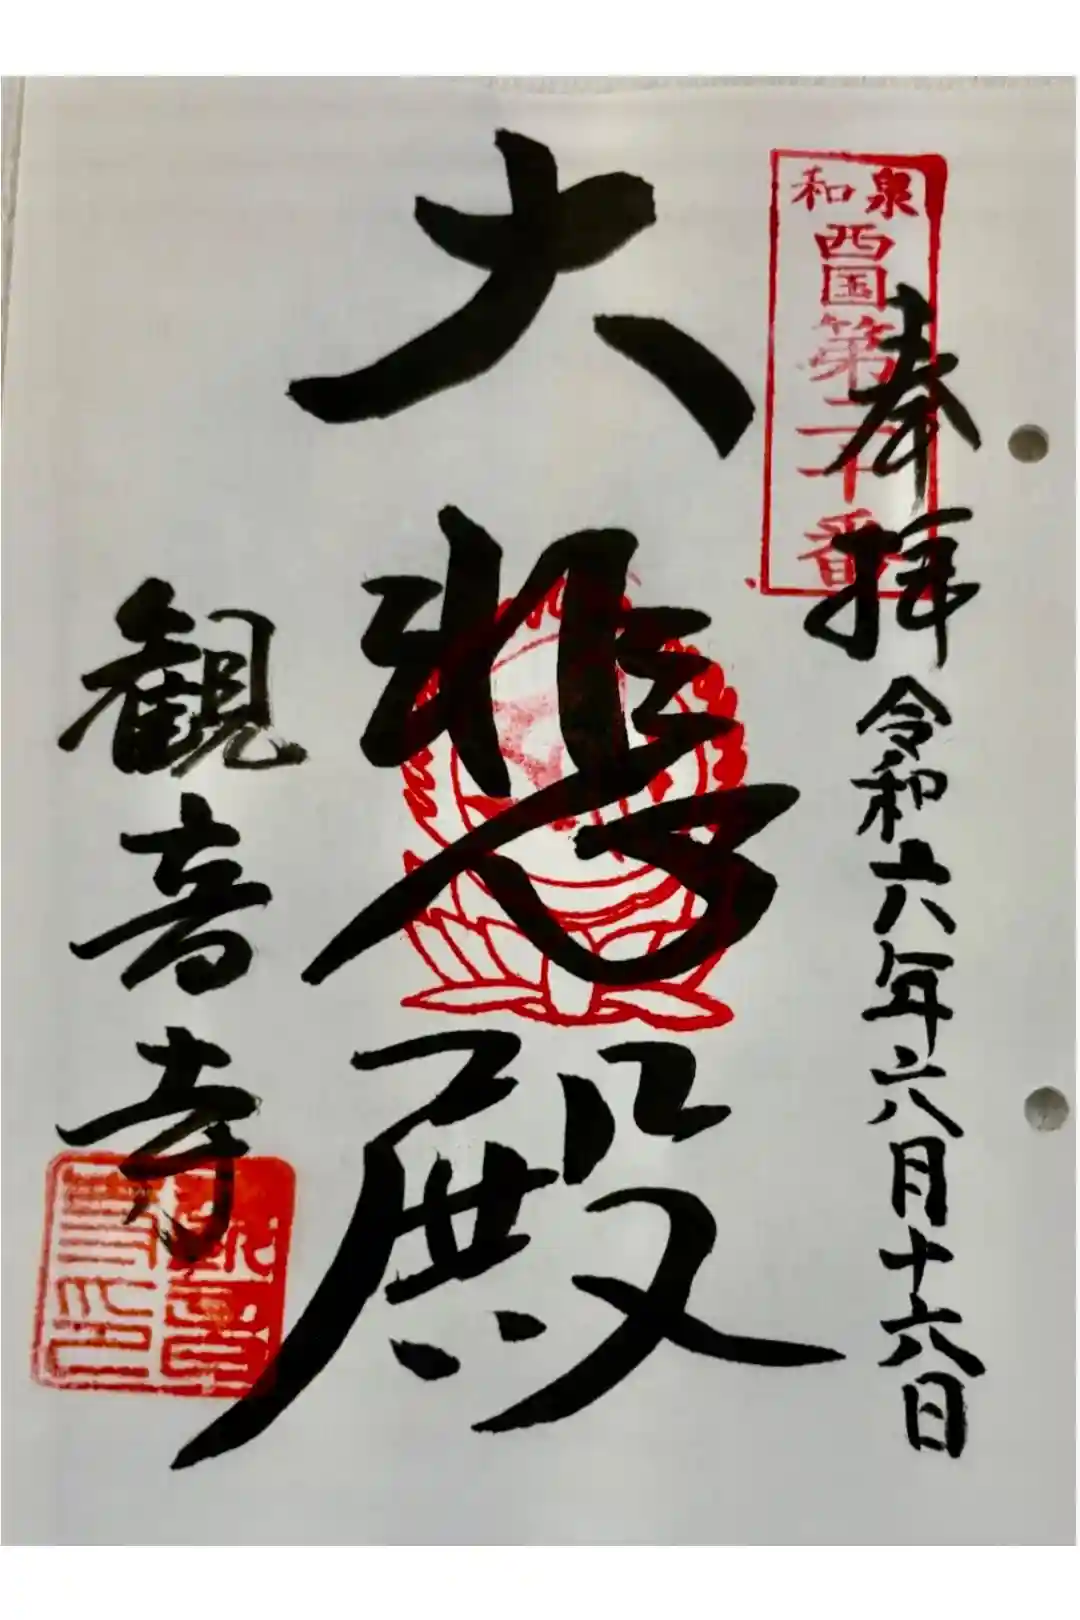 和泉
西国第二十番
奉拝 令和六年六月十六日
大悲殿
観音寺